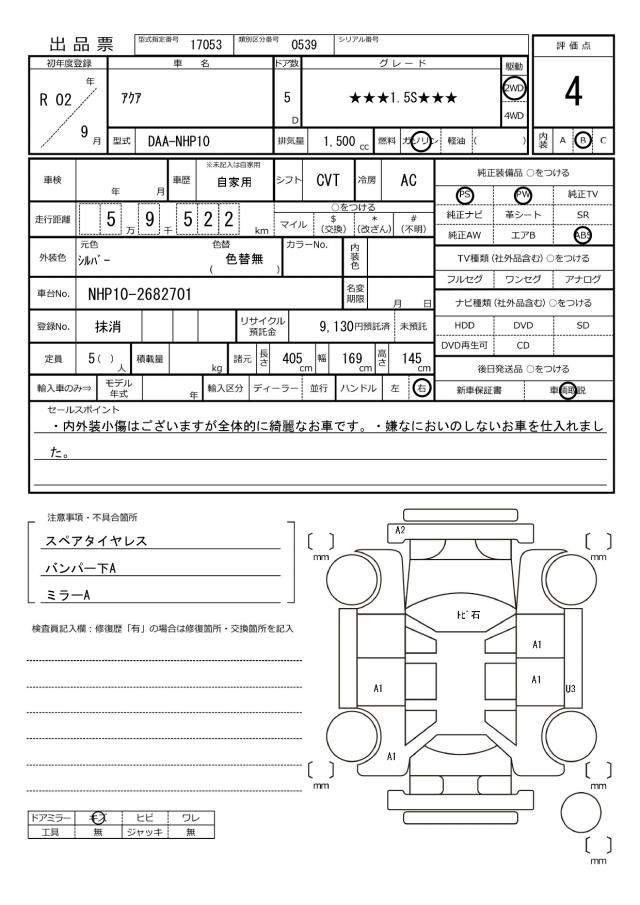 出品票 型式指定番号 17053 類別区分番号 0539 シリアル番号
評価点
4
内装 A B C
初年度登録 車名 ドア数 グレード 駆動
R 02 年 9 月
アクア 5 D ★★★1.5S★★★ 2WD 4WD
型式 DAA-NHP10 排気量 1,500 cc 燃料 ガソリン 軽油 ( )
車検 年 月 車歴 ※未記入は自家用 自家用 シフト CVT 冷房 AC
走行距離 5 万 9 千 5 2 2 km
○をつける
マイル $ (交換) * (改ざん) # (不明)
外装色 元色 シルバー 色替 ( 色替無 ) カラーNo. 内装色
車台No. NHP10-2682701 名変期限 月 日
登録No. 抹消 リサイクル預託金 9,130円預託済 未預託
定員 5( ) 人 積載量 kg 諸元 長さ 405 cm 幅 169 cm 高さ 145 cm
輸入車のみ⇒ モデル年式 年 輸入区分 ディーラー 並行 ハンドル 左 右
純正装備品 ○をつける
PS PW 純正TV
純正ナビ 革シート SR
純正AW エアB ABS
TV種類 (社外品含む) ○をつける
フルセグ ワンセグ アナログ
ナビ種類 (社外品含む) ○をつける
HDD DVD SD
DVD再生可 CD
後日発送品 ○をつける
新車保証書 車輌取説
セールスポイント
・内外装小傷はございますが全体的に綺麗なお車です。・嫌なにおいのしないお車を仕入れまし
た。
注意事項・不具合箇所
スペアタイヤレス
バンパー下A
ミラーA
検査員記入欄：修復歴「有」の場合は修復箇所・交換箇所を記入
ドアミラー キズ ヒビ ワレ
工具 無 ジャッキ 無
A2
[ ] mm
[ ] mm
トビ石
A1
A1
A1
U3
A1
[ ] mm
[ ] mm
[ ] mm